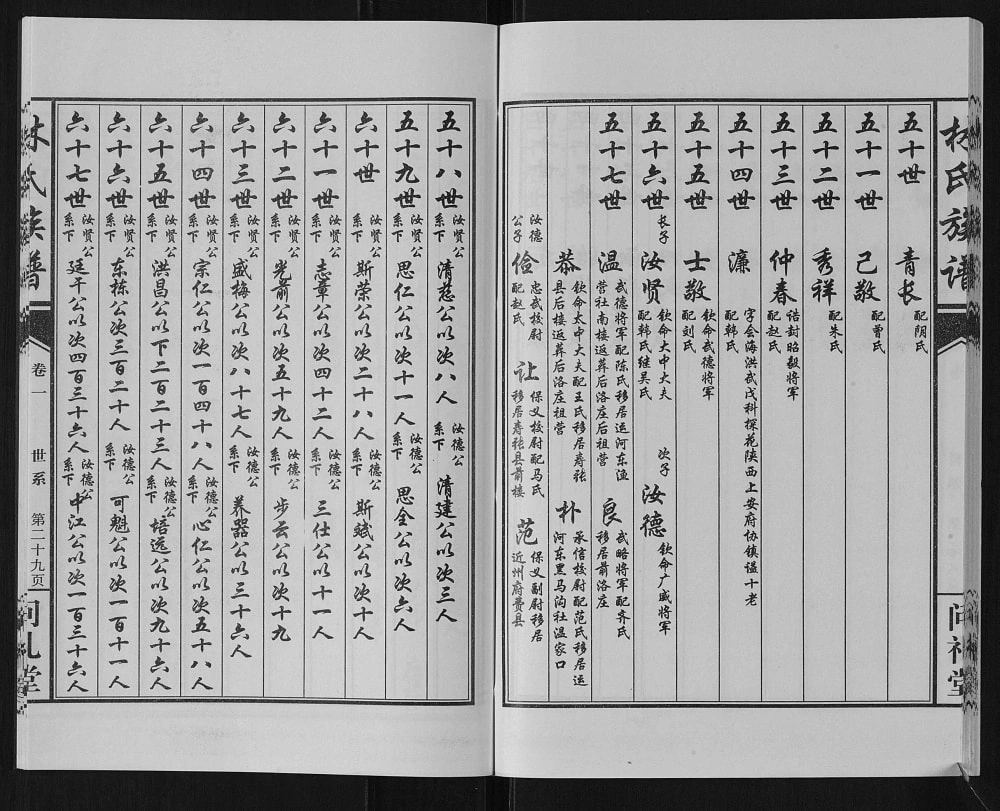 五十世 青长 配阴氏
五十一世 己敬 配曾氏
五十二世 秀祥 配朱氏
五十三世 仲春 诰封昭毅将军 配赵氏
五十四世 濂 字会海洪武戊科探花陕西上安府协镇谥十老 配韩氏
五十五世 士敬 钦命武德将军 配刘氏
五十六世 长子 汝贤 钦命大中大夫 配韩氏继吴氏 次子 汝德 钦命广威将军
五十七世 温 武德将军配陈氏移居运河东渔营社南楼返葬后洛庄后祖营 良 武略将军配齐氏 移居前洛庄
恭 钦命太中大夫配王氏移居寿张县后楼返葬后洛庄祖营 朴 承信校尉配范氏移居运河东黑马沟社温家口
汝德公子 俭 忠武校尉 配赵氏 让 保义校尉配马氏 移居寿张县前楼 范 保义副尉移居近州府费县
五十八世 汝贤公系下 清慈公以次八人 汝德公系下 清建公以次三人
五十九世 汝贤公系下 思仁公以次十一人 汝德公系下 思全公以次六人
六十世 汝贤公系下 斯荣公以次二十八人 汝德公系下 斯斌公以次十人
六十一世 汝贤公系下 志章公以次四十二人 汝德公系下 三仕公以十一人
六十二世 汝贤公系下 光前公以次五十九人 汝德公系下 步云公以次十九
六十三世 汝贤公系下 盛梅公以次八十七人 汝德公系下 养器公以三十六人
六十四世 汝贤公系下 宗仁公以次一百四十八人 汝德公系下 心仁公以次五十八人
六十五世 汝贤公系下 洪昌公以下二百二十三人 汝德公系下 培远公以次九十六人
六十六世 汝贤公系下 东栋公次三百二十人 汝德公系下 可魁公以次一百十一人
六十七世 汝贤公系下 廷干公以次四百三十六人 汝德公系下 中江公以次一百三十六人
氏族谱
卷一 世系 第二十九页